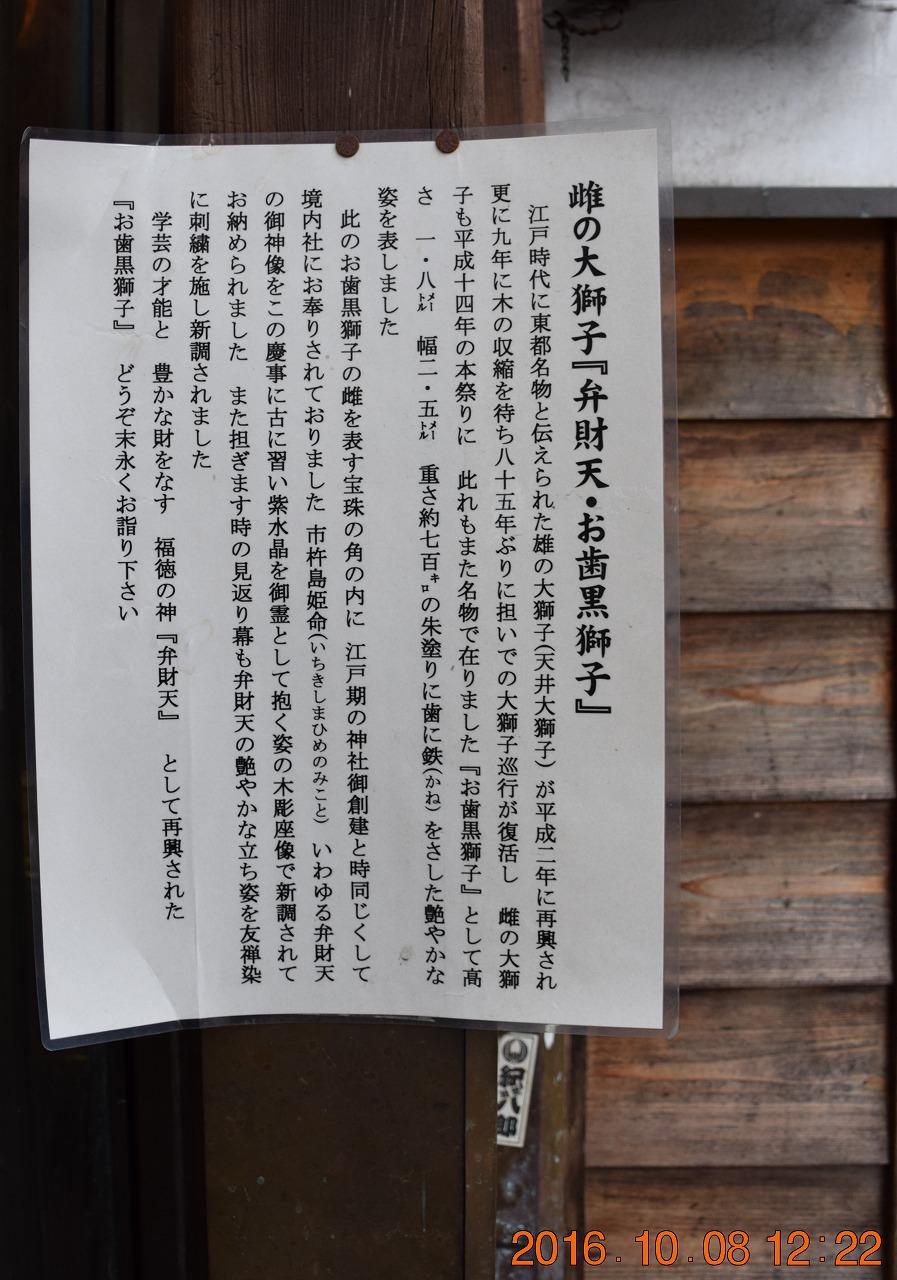 雌の大獅子『弁財天・お歯黒獅子』
江戸時代に東都名物と伝えられた雄の大獅子(天井大獅子)が平成二年に再興され
更に九年に木の収縮を待ち八十五年ぶりに担いでの大獅子巡行が復活し 雌の大獅
子も平成十四年の本祭りに 此れもまた名物で在りました『お歯黒獅子』として高
さ 一・八㍍ 幅二・五㍍ 重さ約七百㌔の朱塗りに歯に鉄(かね)をさした艶やかな
姿を表しました
此のお歯黒獅子の雌を表す宝珠の角の内に 江戸期の神社御創建と時同じくして
境内社にお奉りされておりました 市杵島姫命(いちきしまひめのみこと) いわゆる弁財天
の御神像をこの慶事に古に習い紫水晶を御霊として抱く姿の木彫座像で新調されて
お納められました また担ぎます時の見返り幕も弁財天の艶やかな立ち姿を友禅染
に刺繍を施し新調されました
学芸の才能と 豊かな財をなす 福徳の神『弁財天』 として再興された
『お歯黒獅子』 どうぞ末永くお詣り下さい
紀八郎
2016.10.08 12:22